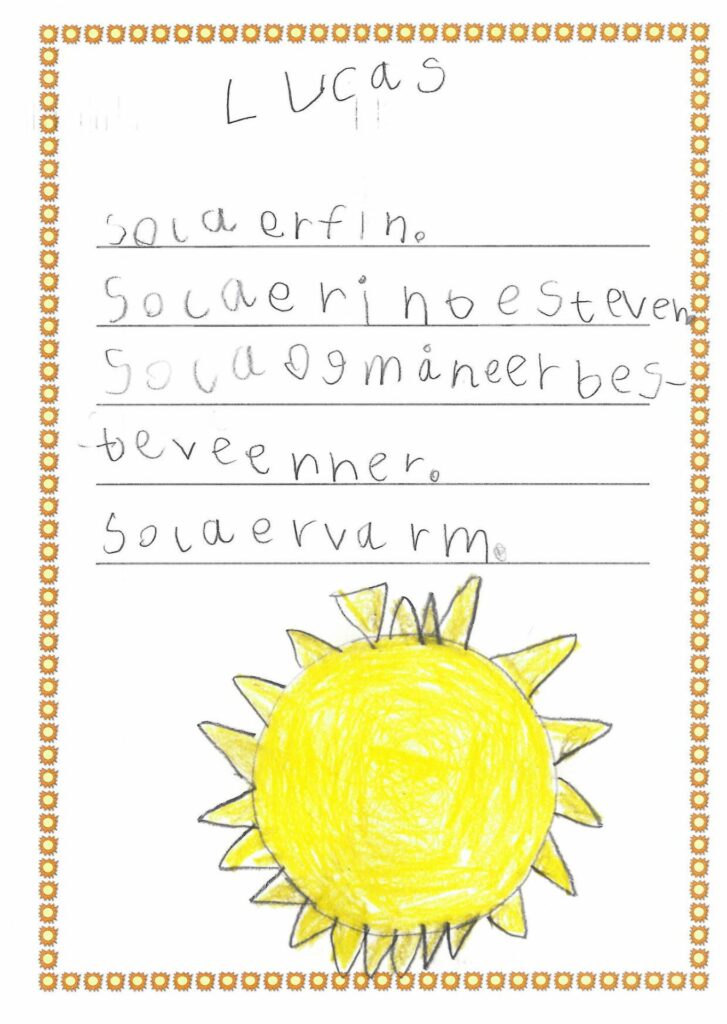 Lucas
Sola er fin.
Sola er in besteven.
Sola og måne er bes-
-beveenner.
Sola er varm.